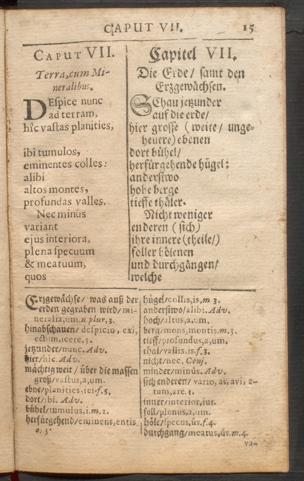 CAPUT VII.
15
CAPUT VII.
Terra, cum Mi-
neralibus.
DEspice nunc
ad terram,
hîc vastas planities,
ibi tumulos,
eminentes colles:
alibi
altos montes,
profundas valles.
Nec minus
variant
ejus interiora,
plena specuum
& meatuum,
quos
Capitel VII.
Die Erde/ samt den
Erzgewächsen.
SChau jetzunder
auf die erde/
hier grosse (weite/ unge-
heuere) ebenen
dort bühel/
herfürgehende hügel:
anderstwo
hohe berge
tieffe thäler.
Nicht weniger
enderen (sich)
ihre innere (theile/)
foller hölenen
und durchgängen/
welche
Erzgewächse/ was auß der
erden gegraben wird/ mi-
neralia, um. 2. plur. 3.
hinabschauen/ despicio, exi,
ectum, icere. 3.
jetzunder/ nunc. Adv.
hier/ hîc. Adv.
mächtig weit/ über die massen
groß/ vastus, a, um.
ebne/ planities, iei. f. 5.
dort/ ibi. Adv.
bühel/ tumulus, i. m. 2.
herfürgehend/ eminens, entis
o. 3.
hügel/ collis, is, m 3.
anderstwo/ alibi. Adv.
hoch/ altus, a, um.
berg/ mons, montis. m. 3.
tieff/ profundus, a, um.
thal/ vallis. is. f. 3.
nicht/ nec. Conj.
minder/ minùs. Adv.
sich enderen/ vario, as, avi, a-
tum, are. 1.
inner/ interior, ius.
foll/ plenus, a, um.
höle/ specus, ûs. f. 4.
durchgang/ meatus, ûs. m. 4.